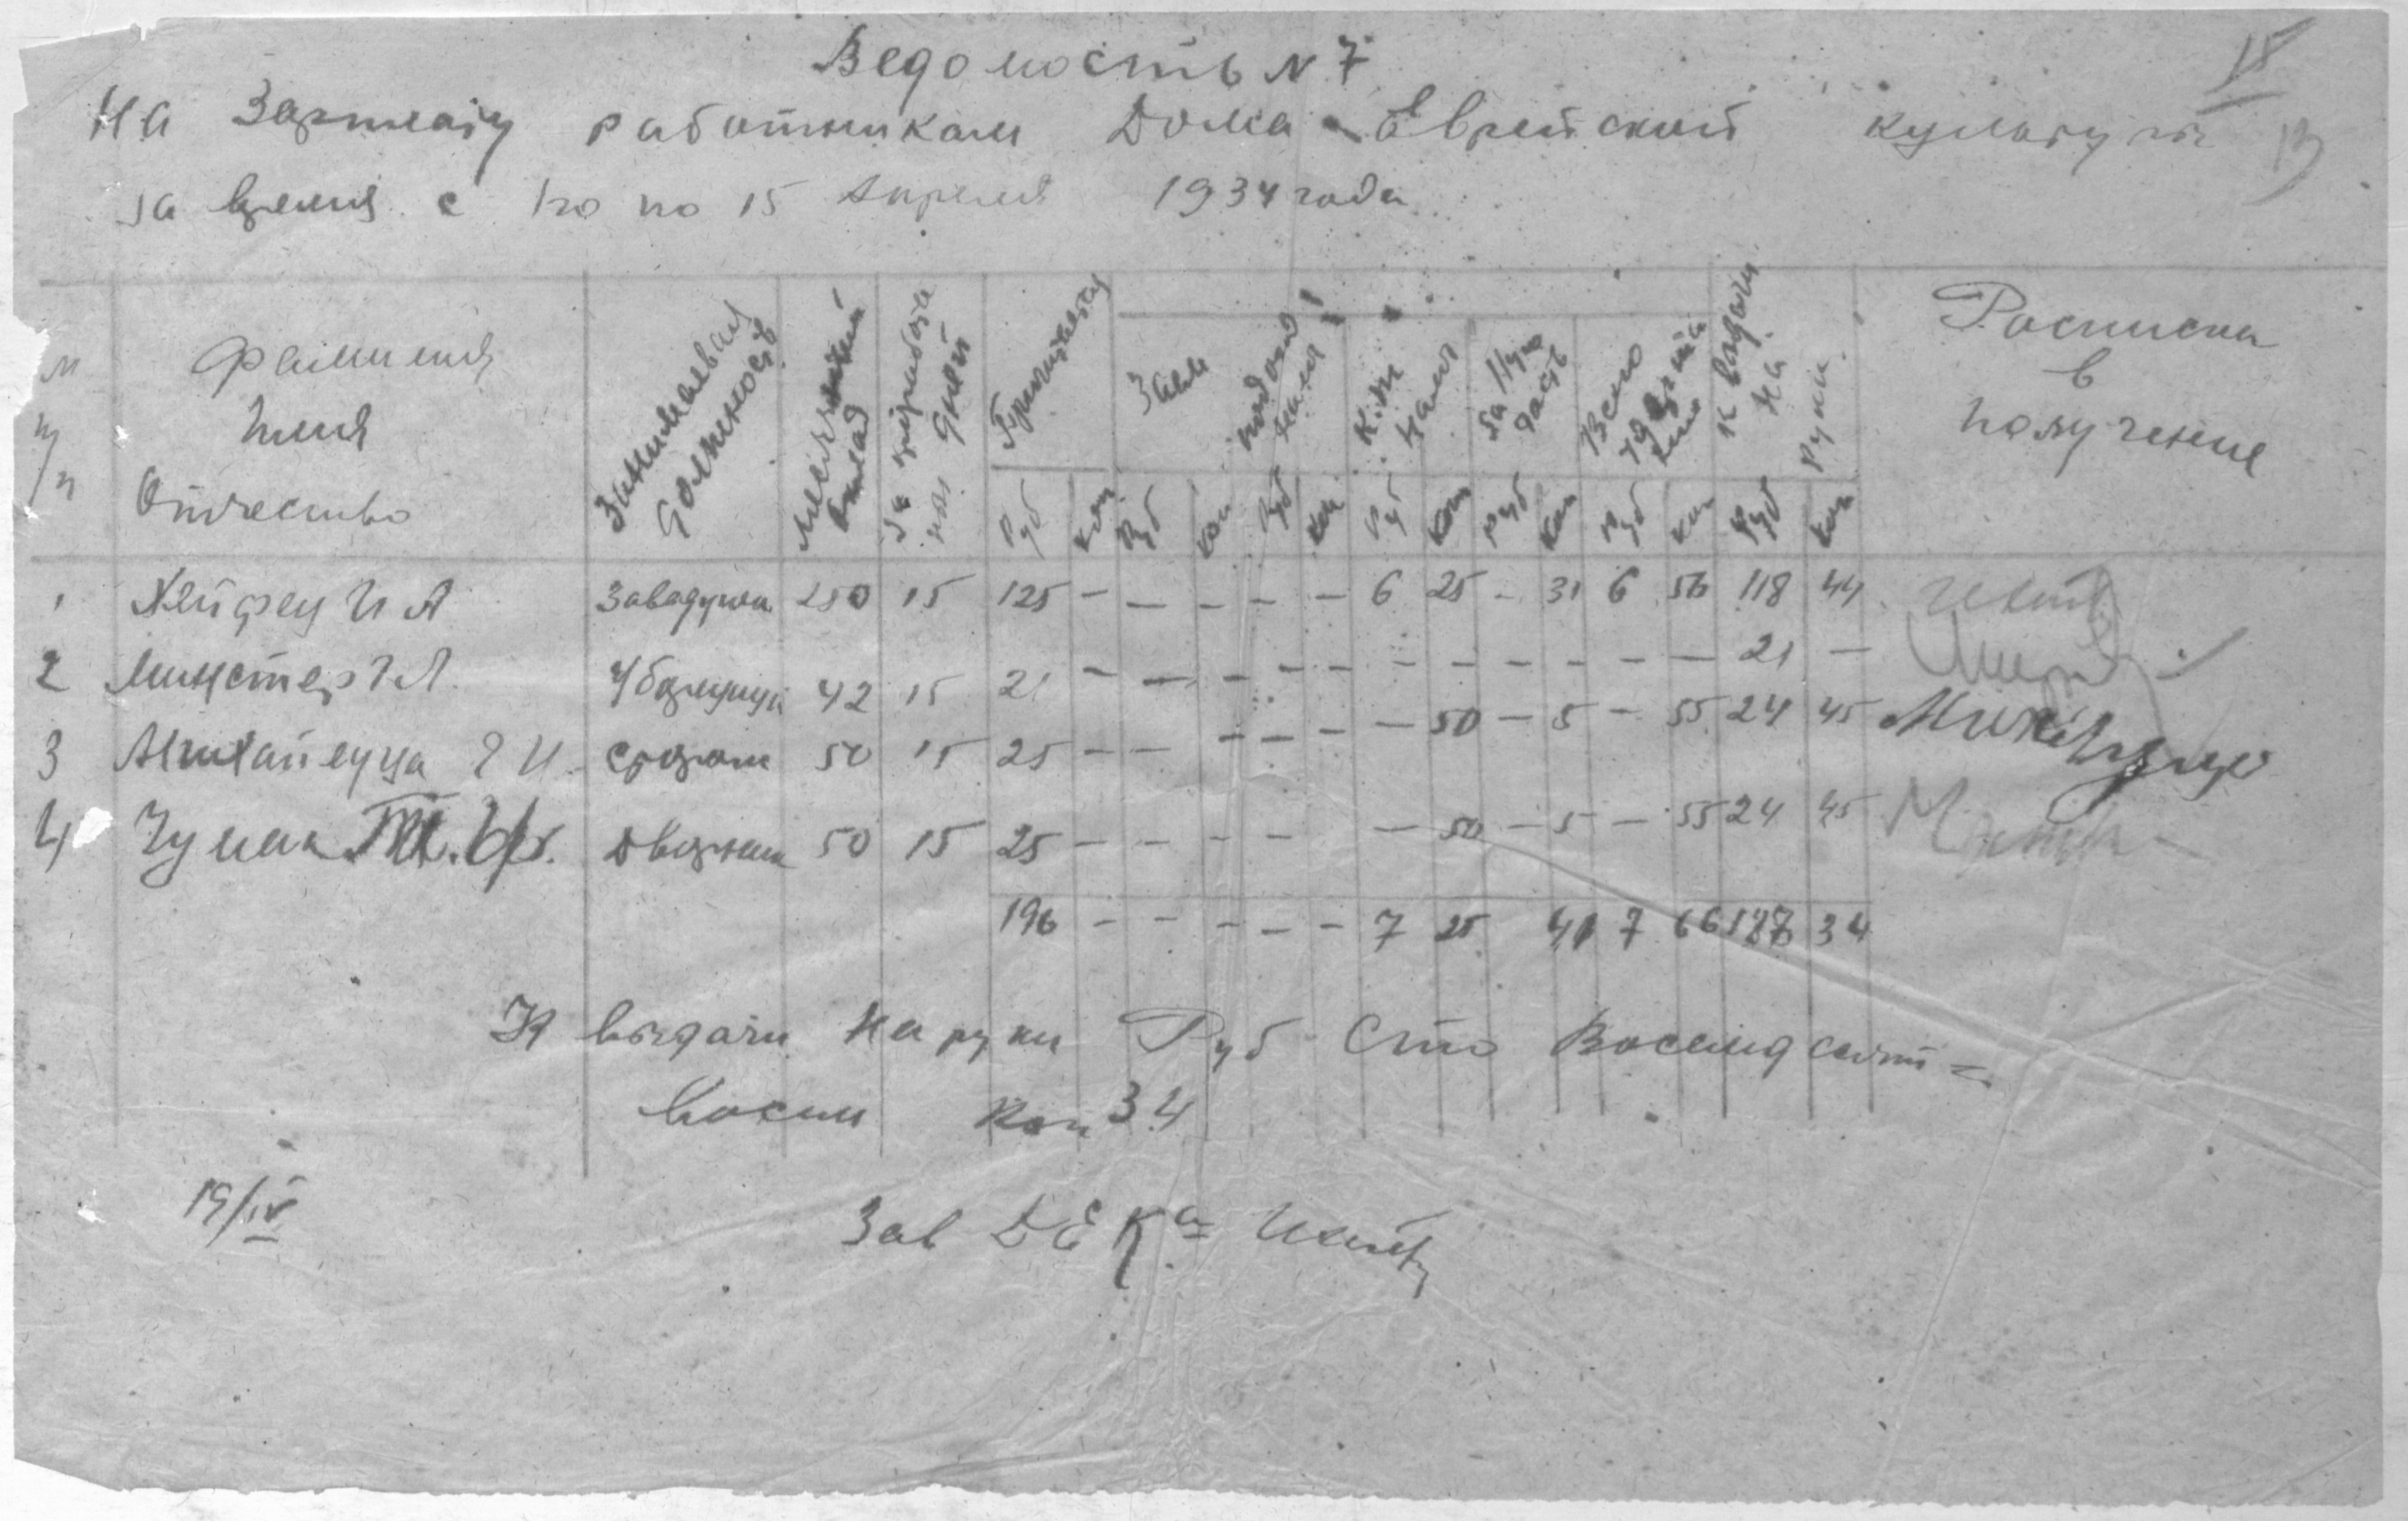 Ведомость N 7
15
На Зарплату работникам Дома Еврейской культуры
за время с 1го по 15 Апреля 1934 года
N п/п
Фамилия Имя Отчество
Занимаемая должность
Месячный оклад
За дней
Причитается
Заем
подоход налог
К.ж налог
Всего удержано
К выдачи на руки
Росписка в получение
Руб Коп Руб Коп Руб Коп Руб Коп Руб Коп Руб Коп Руб Коп
1 Хейфец И А Заведующ 250 15 125 – – – – – 6 25 – 31 6 56 118 44
2 Минстер Г Л Уборщица 42 15 21 – – – – – – – – – – – 21 –
3 Михайлуца Я И Сторож 50 15 25 – – – – – – 50 – 5 – 55 24 45
4 Чумак Дворник 50 15 25 – – – – – 50 – 5 – 55 24 45
196 – – – – – 7 25 41 7 66 188 34
К выдачи на руки Руб Сто Восемдесят =
восем Коп 34
19/IV
Зав ДЕКа